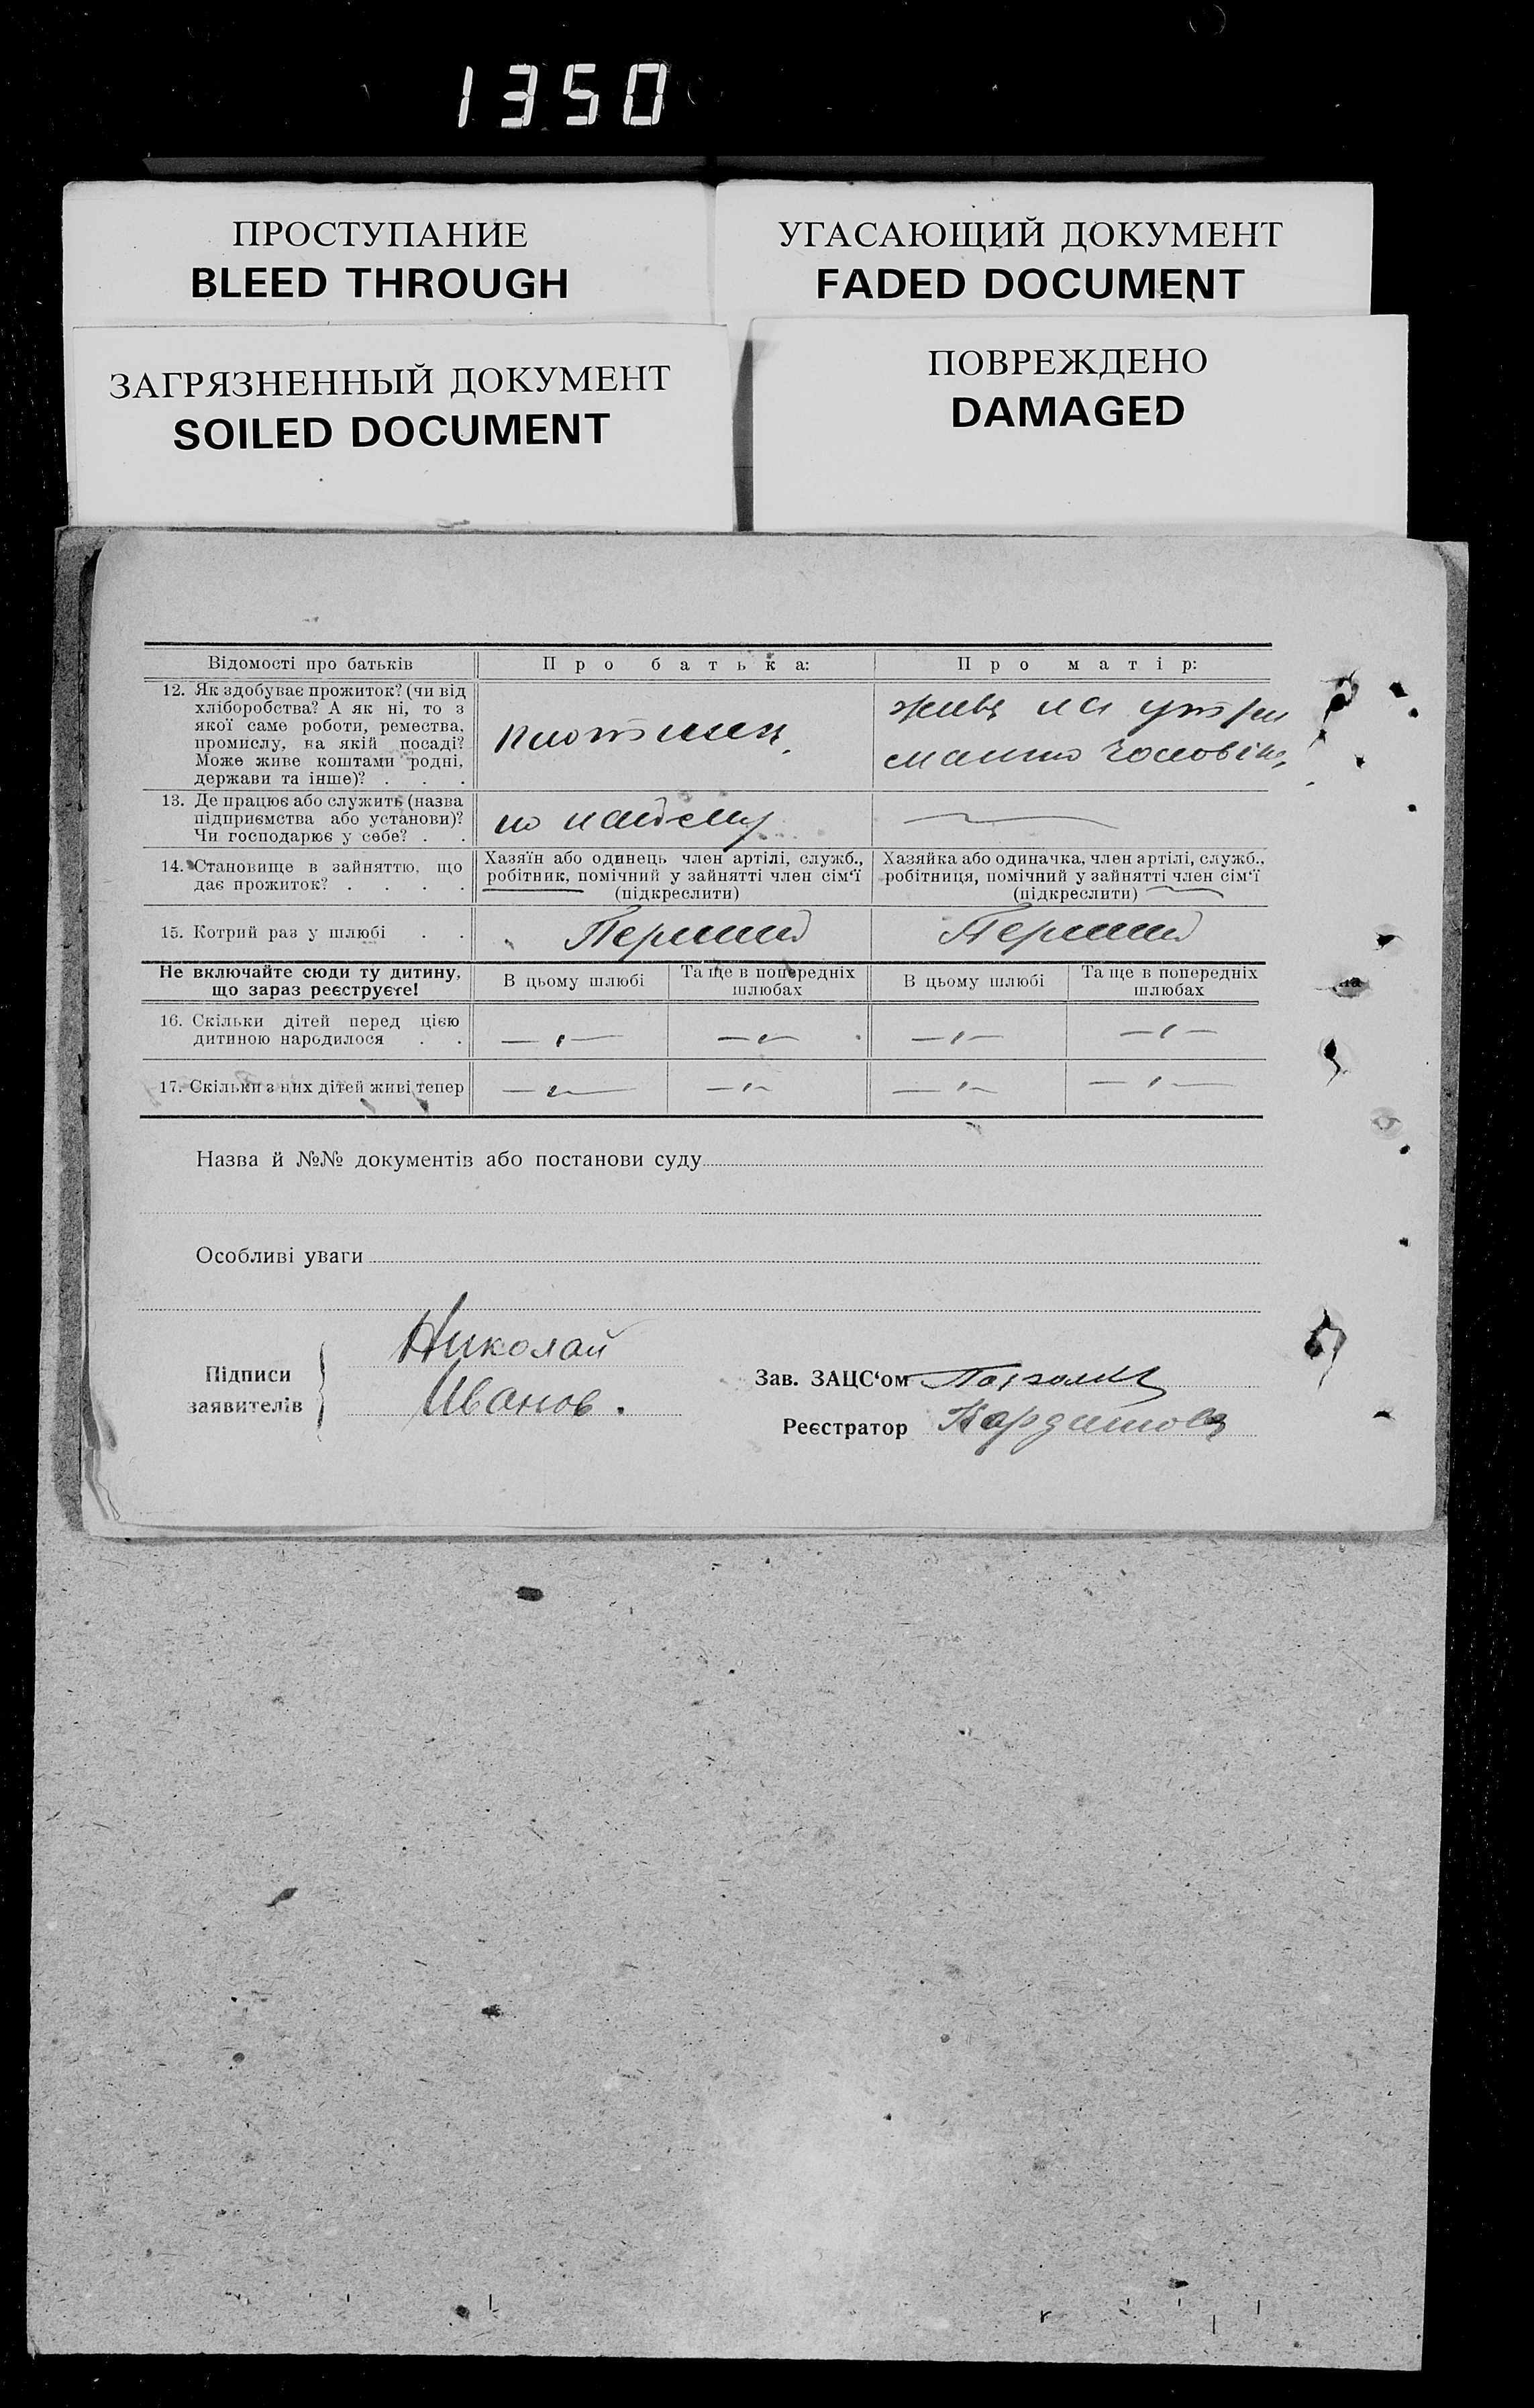 1350
ПРОСТУПАНИЕ
BLEED THROUGH
УГАСАЮЩИЙ ДОКУМЕНТ
FADED DOCUMENT
ЗАГРЯЗНЕННЫЙ ДОКУМЕНТ
SOILED DOCUMENT
ПОВРЕЖДЕНО
DAMAGED
Відомості про батьків
Про батька:
Про матір:
12. Як здобуває прожиток? (чи від
хліборобства? А як ні, то з
якої саме роботи, ремества,
промислу, на якій посаді?
Може живе коштами родні,
держави та інше)? . . .
живе на утри
манню чоловіка
13. Де працює або служить (назва
підприємства або установи)?
Чи господарює у себе? . .
по найому
14. Становище в зайняттю, що
дає прожиток? . . . .
Хазяїн або одинець член артілі, служб.,
робітник, помічний у зайнятті член сім‘ї
(підкреслити)
Хазяйка або одиначка, член артілі, служб.,
робітниця, помічний у зайнятті член сім‘ї
(підкреслити)
15. Котрий раз у шлюбі . .
Перший
Перший
Не включайте сюди ту дитину,
що зараз реєструєте!
В цьому шлюбі
Та ще в попередніх
шлюбах
В цьому шлюбі
Та ще в попередніх
шлюбах
16. Скільки дітей перед цією
дитиною народилося . .
17. Скільки з них дітей живі тепер
Назва й №№ документів або постанови суду
Особливі уваги
Підписи
заявителів
Николай
Иванов.
Зав. ЗАЦС‘ом
Реєстратор